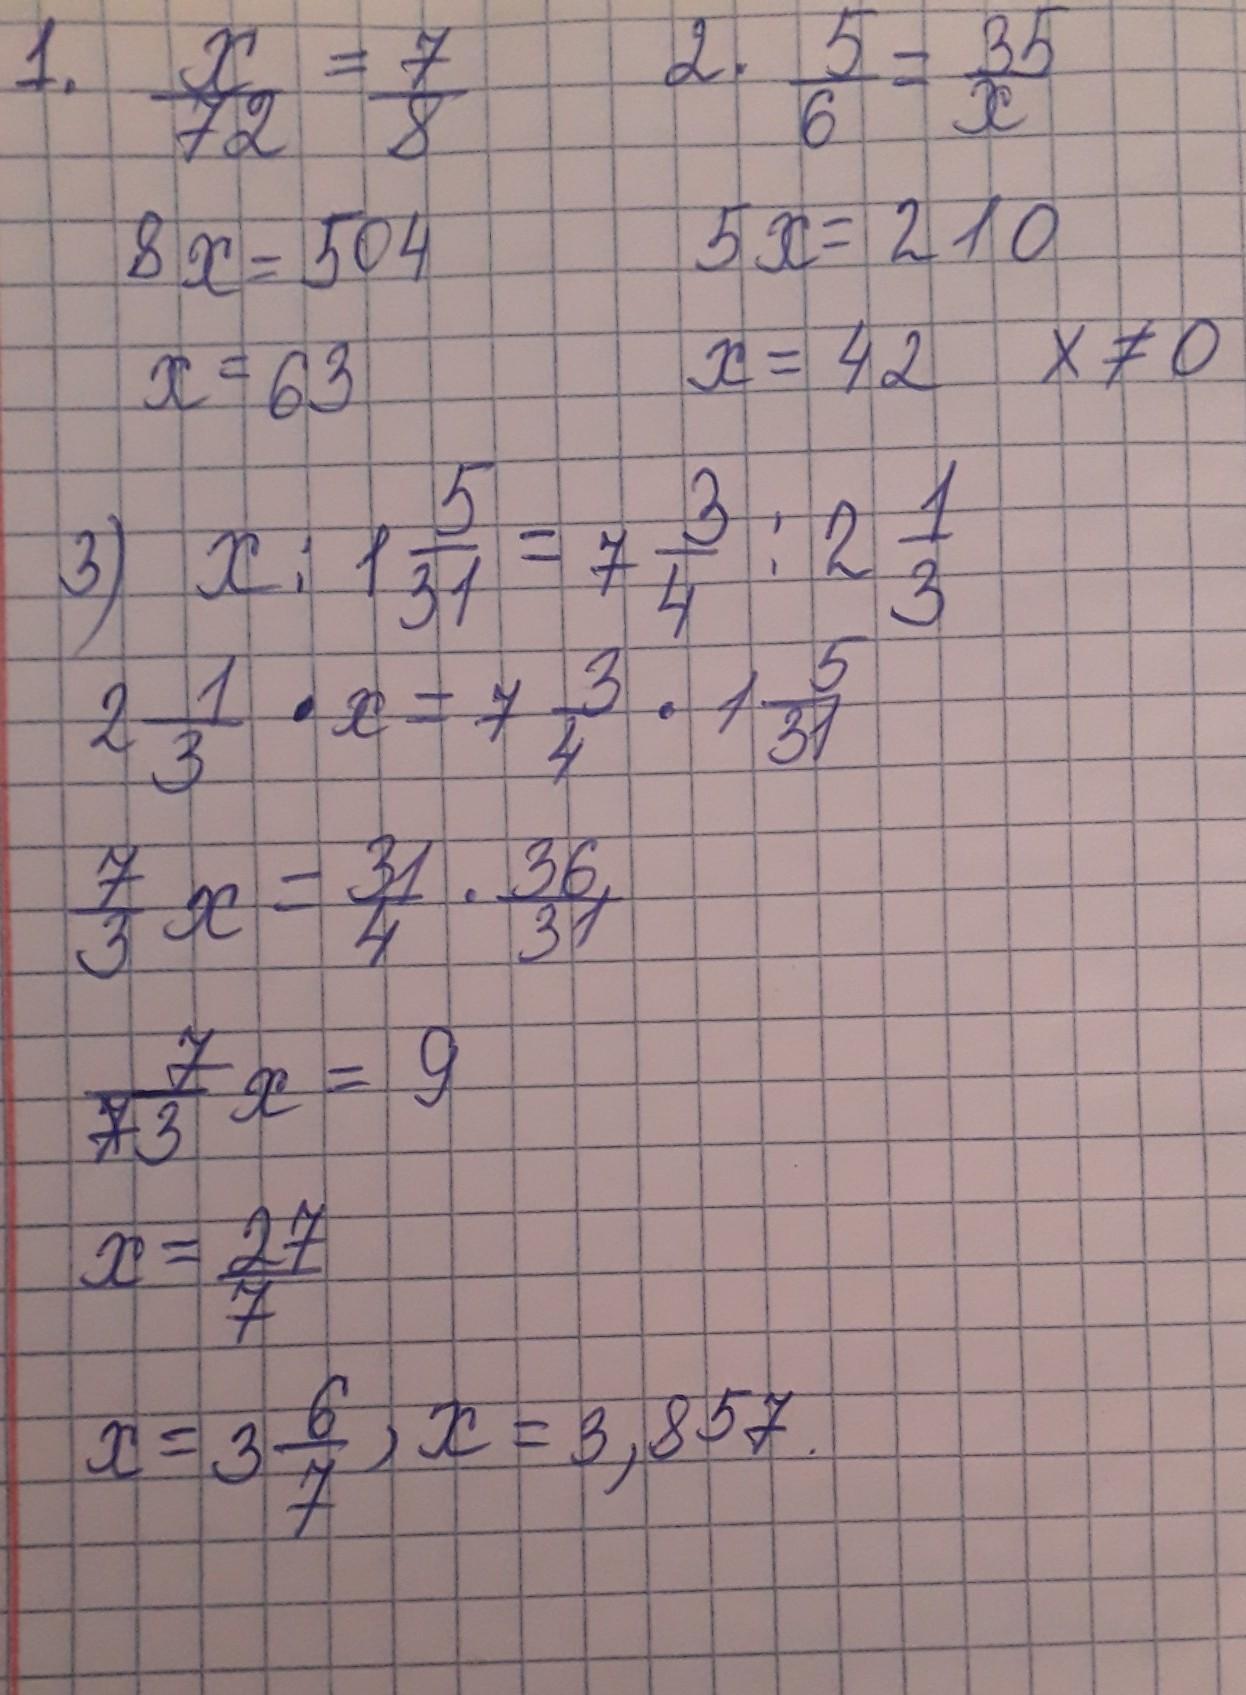 1. x/72 = 7/8    2. 5/6 = 35/x
8x = 504    5x = 210
x = 63    x = 42    x ≠ 0
3) x : 1 5/31 = 7 3/4 : 2 1/3
2 1/3 · x = 7 3/4 · 1 5/31
7/3 x = 31/4 · 36/31
7/3 x = 9
x = 27/7
x = 3 6/7, x = 3,857.